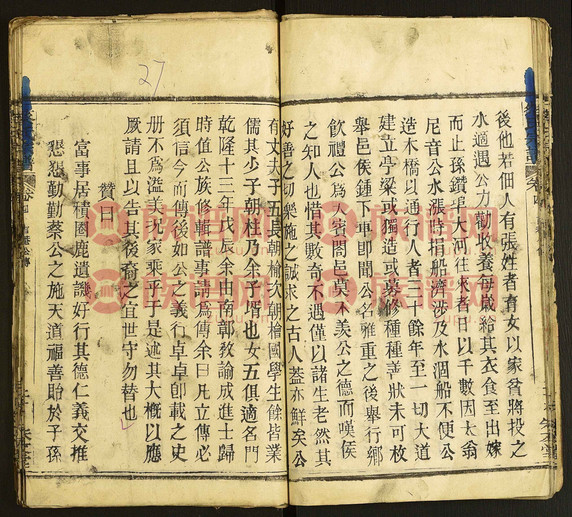 後他若佃人有張姓者育女以家貧將投之
水適遇公力勸收養每歲給其衣食至出嫁
而止孫鑽埠大河往來者日以千數因太翁
尼音公水漲時捐船濟涉及水涸船不便公
造木橋以通行人者三十餘年至一切大道
建立亭梁或獨造或募修種種善狀未可枚
舉邑侯鍾下車即聞公名雅重之後舉行鄉
飲禮公為大賓闔邑莫不羨公之德而嘆侯
之知人也惜其數奇不遇僅以諸生老然其
好善之切樂施之誠求之古人蓋亦鮮矣公
有丈夫子五長朝榆次朝檜國學生餘皆業
儒其少子朝柱乃余子壻也女五俱適名門
乾隆十三年戊辰余由南部教諭成進士歸
時值公族修輯譜事請為傳余曰凡立傳必
須信今而傳後如公之義行卓卓即載之史
册不為溢美况家乘乎于是述其大槪以應
厥請且以告其後裔之宜世守勿替也
贊曰
富事居積囷鹿遺譏好行其德仁義交推
懇懇勤勤蔡公之施天道福善貽於子孫
27
族谱网